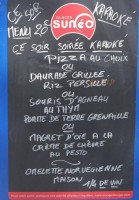 CE SOIR
KARAOKE
GLACES
SUNÉO
MENU 20€
CE SOIR SOIRÉE KARAOKE
PIZZA AU CHOIX
OU
DAURADE GRILLEE
RIZ PERSILLE
OU
SOURIS D'AGNEAU
AU THYM
POMME DE TERRE GRENAILLE
OU
MAGRET D'OIE A LA
CRÈME DE CHÈVRE
AU PESTO
OMELETTE NORVEGIENNE
MAISON
1/4 DE VIN